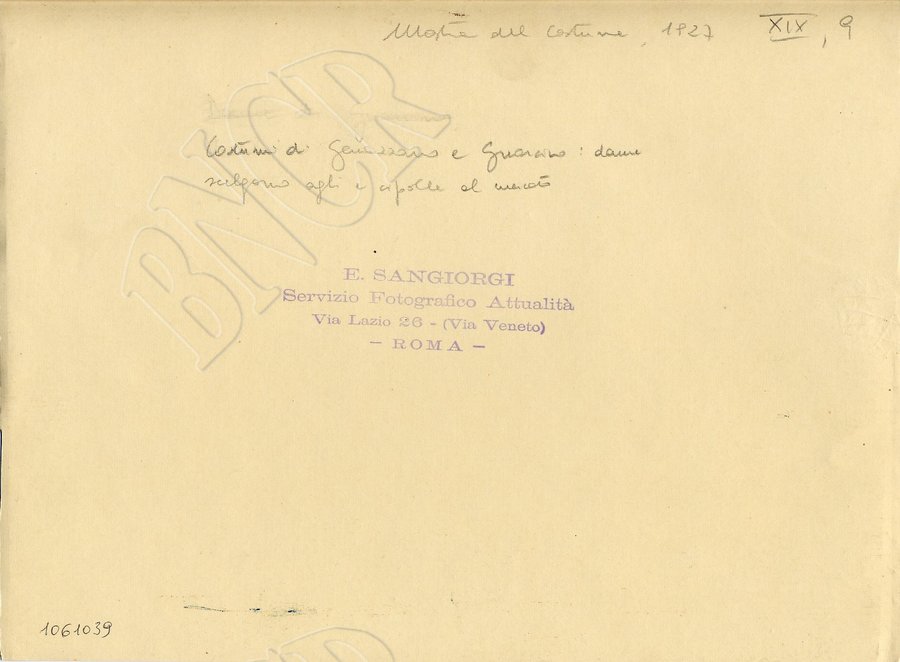 Mostra del Costume, 1927 XIX, 9
Costumi di Genazzano e Guarcino: donne
scelgono agli e cipolle al mercato
E. SANGIORGI
Servizio Fotografico Attualità
Via Lazio 26 - (Via Veneto)
- ROMA -
BNCR
1061039
BNCR